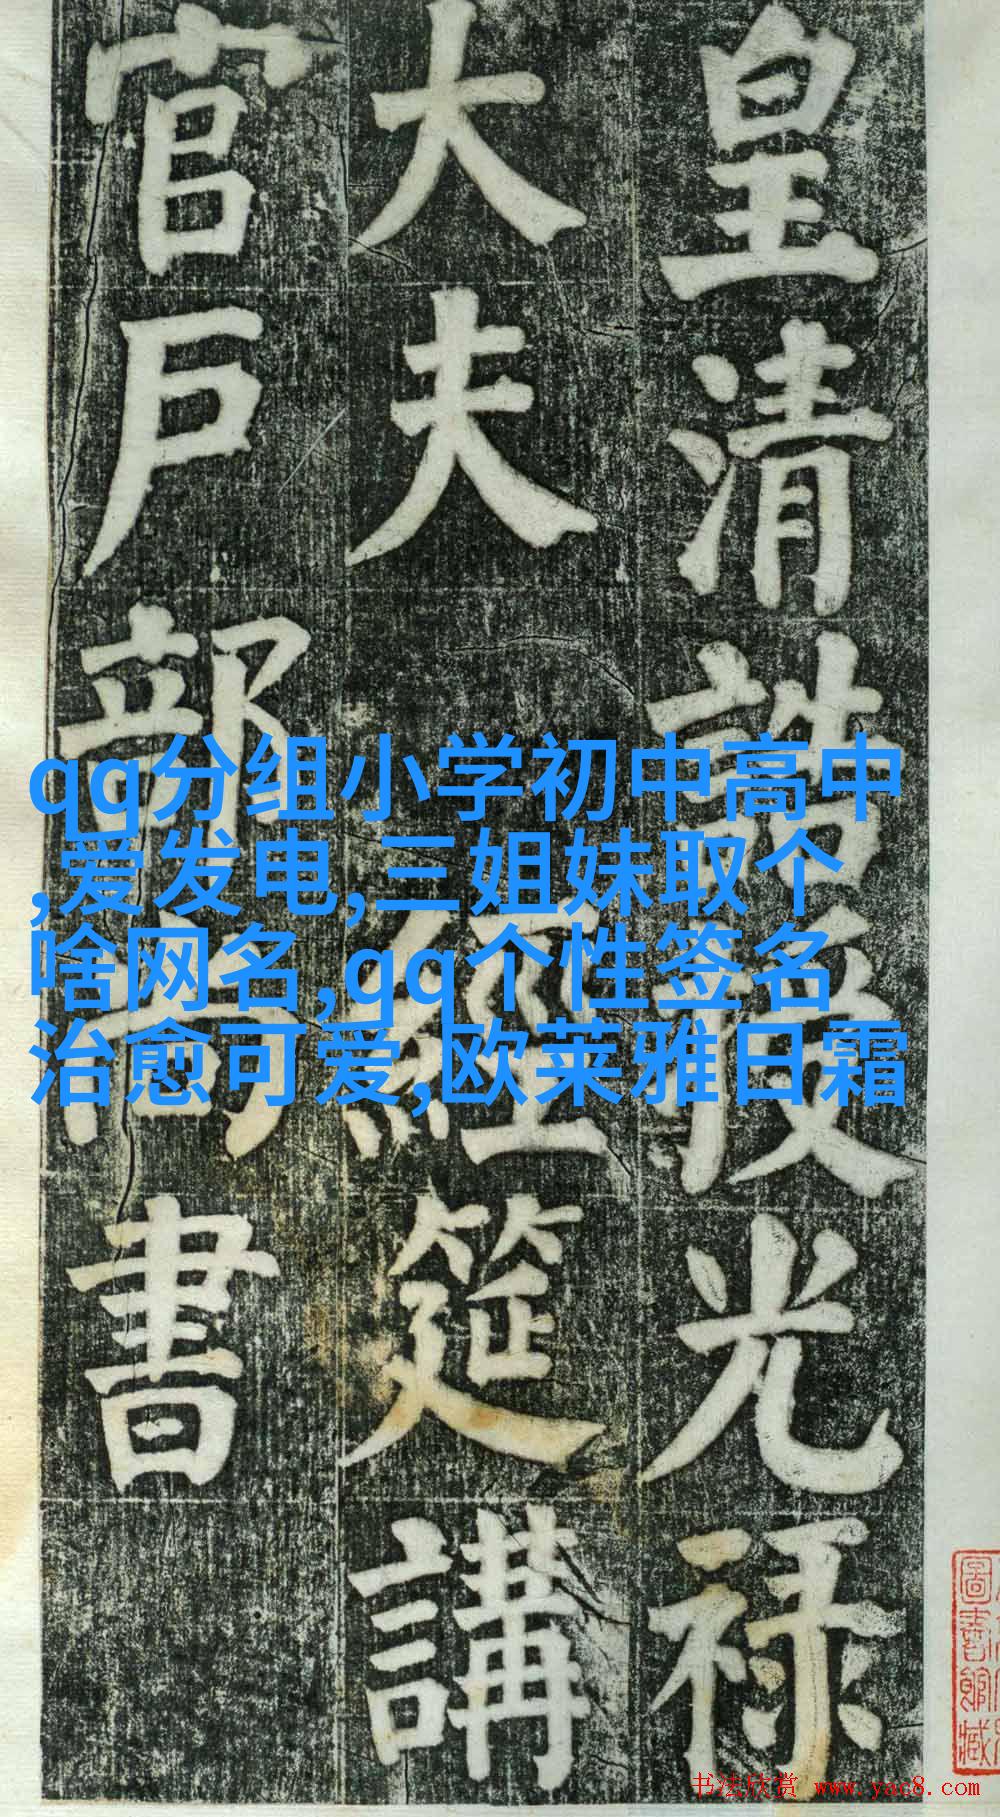 皇清誥授光祿
大夫 經筵講
官戶部尚書
qg分组小学初中高中
,爱发电,三姐妹取个
啥网名,qq个性签名
治愈可爱,欧莱雅日霜
圖書館藏
书法欣赏 www.yac8.com